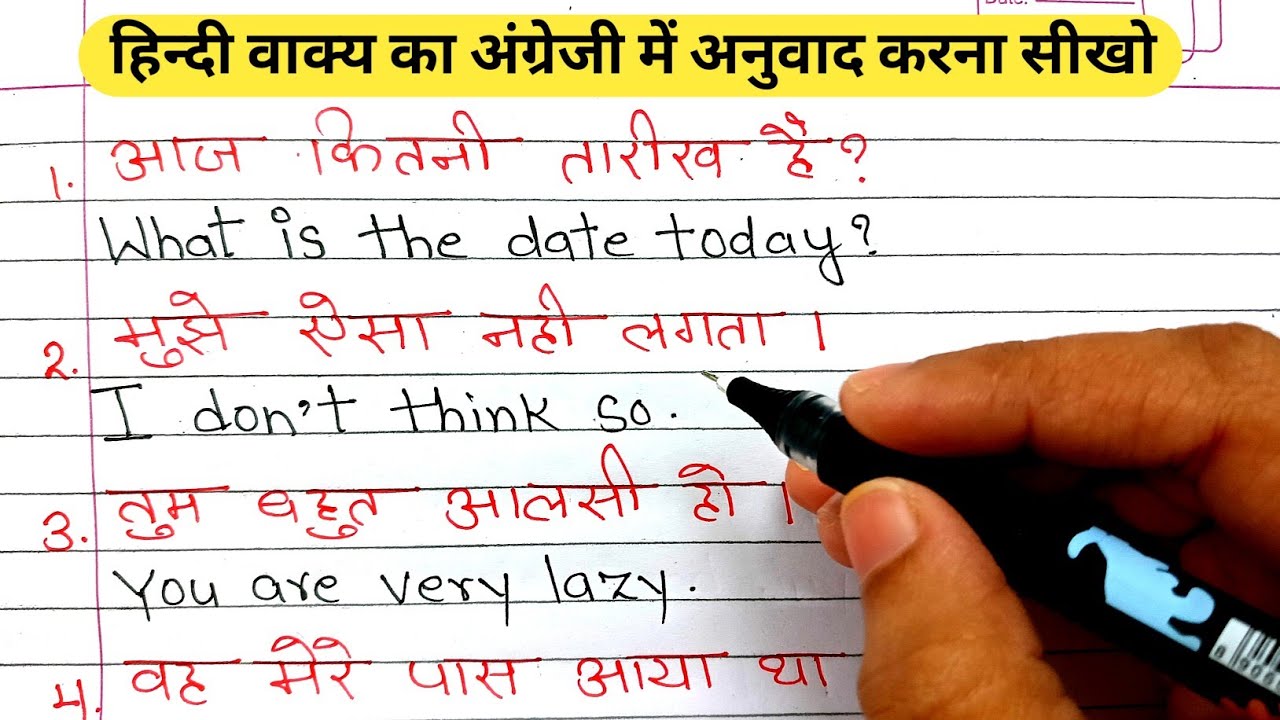 हिन्दी वाक्य का अंग्रेजी में अनुवाद करना सीखो
Date:
1. आज कितनी तारीख है?
What is the date today?
2. मुझे ऐसा नही लगता ।
I don't think so.
3. तुम बहुत आलसी हो ।
You are very lazy.
4. वह मेरे पास आया था